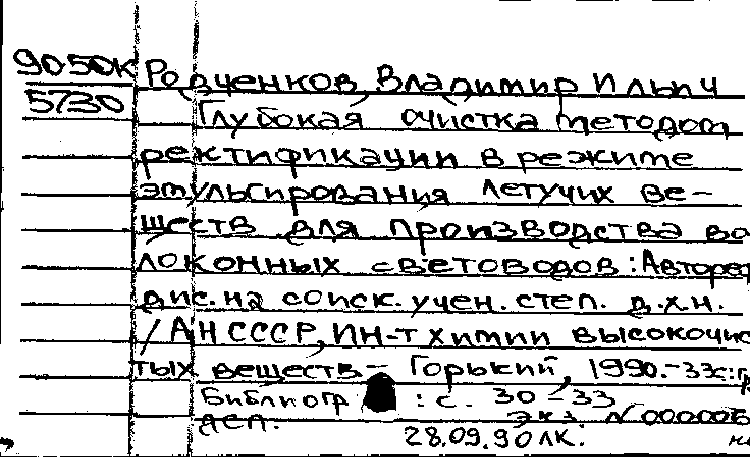 9050К Родченков, Владимир Ильич
5730 Глубокая очистка методом
ректификации в режиме
эмульгирования летучих ве-
ществ для производства во
локонных световодов: Авторе
дис. на соиск. учен. степ. д.х.н.
/АН СССР, Ин-т химии высокочис
тых веществ - Горький, 1990.-33с:
Библиогр : с. 30-33
деп. экз. N000006
28.09.90 ЛК.